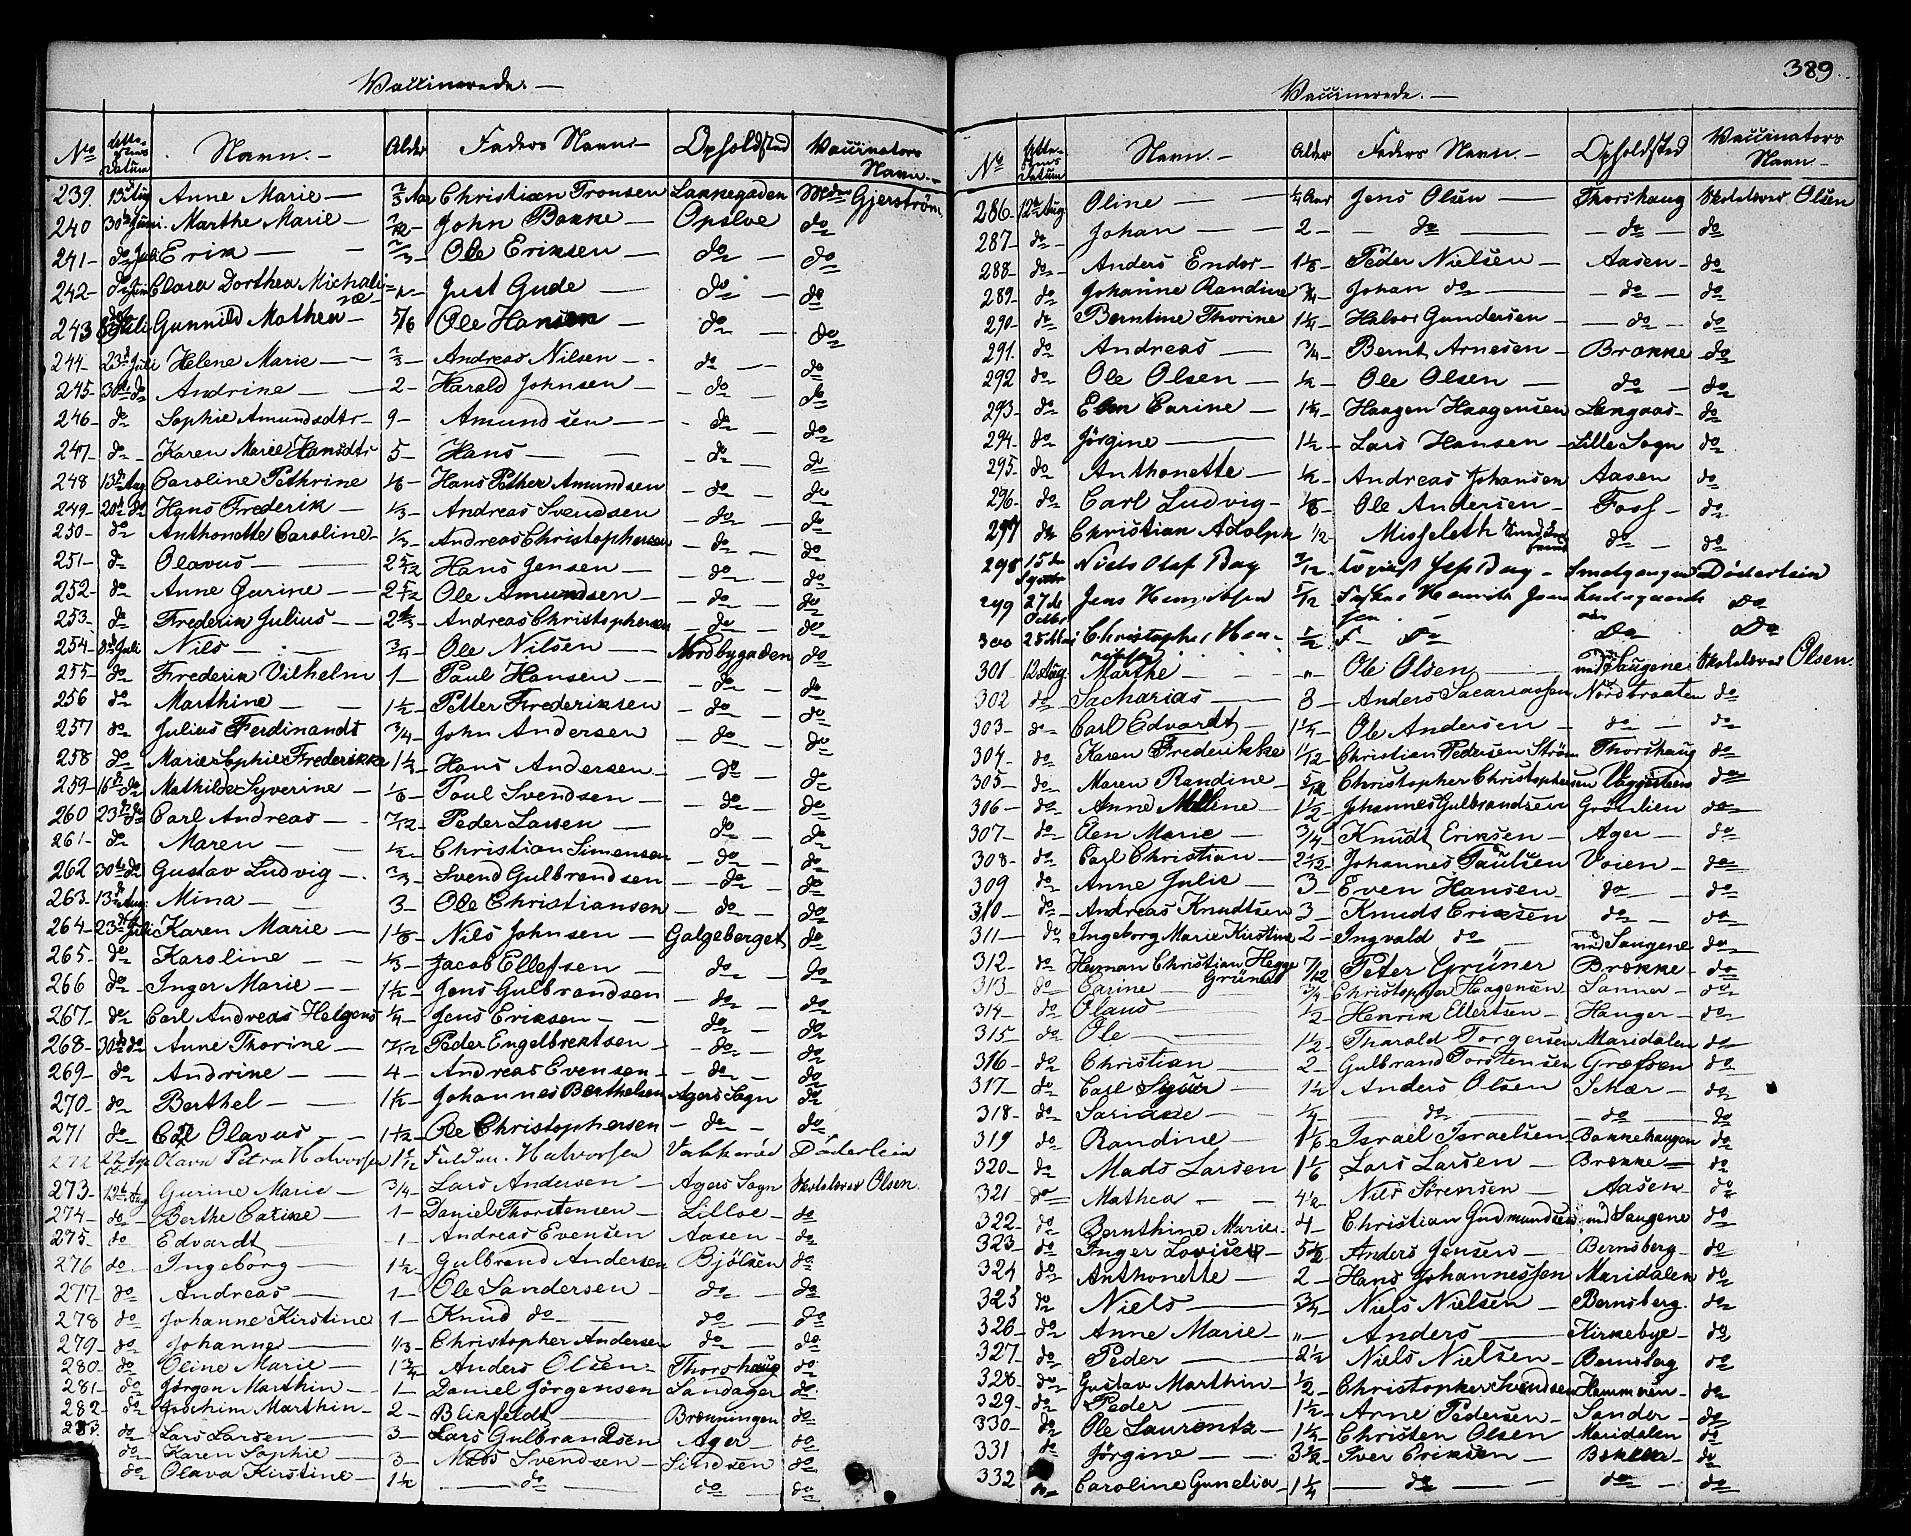 389.
Vaccinerede. —
No Attestens Datum Navn. — Alder Faders Navn — Opholdsted Vaccinators Navn. —
239. 13 Aug Anne Marie — 2/3 Aar Christian Tronsen Lakkegaden Mdm Gjerström
240 30te Juni. Marthe Marie — John Bakke — Opsloe do
241 — do Juli Erik — 2/3 — Ole Eriksen — do — do
242 — Clara Dorthea Michaline — Just Gude — do — do
243 Juli Gunnild Mathea — 5/6 Ole Hansen — do — do
244 — 23de Juli Helene Marie — 2/3 — Andreas Nilsen — do — do
245 — 30te do Andrine — 2 — Harald Johnsen — do do
246 — do Sophie Amundsdtr — 9 — Amundsen — do — do
247 — do — Karen Marie Hansdtr 5 — Hans — do — do
248 13de Aug Caroline Pethrine 1/6 — Hans Pether Amundsen — do — do
249 — 20de do Hans Frederik — 1/3 — Andreas Svendsen — do — do
250 — do Anthonette Caroline — 1/3 — Andreas Christophersen — do — do
251 — do Olavus — 2 5/12 Hans Jensen — do — do
252 — do Anne Gurine — 2 5/12 Ole Amundsen — do — do
253 — do Frederik Julius — 2 2/3 — Andreas Christophersen — do — do
254 — 8de Juli Nils — 3/4 — Ole Nilsen — Nordbygaden do
255 — do Frederik Vilhelm 1 — Paul Hansen — do — do
256 do Marthine — 1 1/2 — Petter Frederiksen — do — do
257 do Julius Ferdinandt 3/4 — John Andersen — do — do
258 do — Marie Sophie Frederikke 1 1/2 — Hans Andersen — do — do
259 — 16de do Mathilde Syverine — 1/6 — Poul Svendsen — do — do
260 23de do Carl Andreas — 7/12 — Peder Larsen — do — do
261 — do Maren — 1/2 — Christian Simensen — do — do
262 30te do Gustav Ludvig — 2/3 — Svend Gulbrandsen — do — do
263 — 13de Aug: Mina — 3 — Ole Christiansen — do — do
264 — 23de Juli Karen Marie — 1 1/6 — Nils Johnsen — Galgeberget do
265 — do Karoline — 1/3 — Jacob Ellefsen — do — do
266 do — Inger Marie — 1 1/2 — Jens Gulbrandsen — do — do
267 — do Carl Andreas Helgens 1/4 — Jens Eriksen — do — do
268 — 30te do Anne Thorine — 7/12 Peder Engelbrektsen — do — do
269 — do Andrine — 4 — Andreas Evensen — do — do
270 — do Berthel — 1 1/2 — Johannes Berthelsen Agers Sogn do
271 do Olavus — 1 1/2 — Ole Christophersen — do — do
272 22 Sep Olava Petra Halvorsen 1 1/12 Halvorsen Döderlein
273 — 12te Aug Gurine Marie — 3/4 — Lars Andersen — Agers Sogn Skolelærer Olsen.
274 — do — Berthe Carine — 1 — Daniel Thorstensen — Lilloe — do
275 — do Edvardt — 1 — Andreas Evensen — Aasen — do
276 do — Ingeborg — 1 1/2 — Gulbrand Andersen Bjölsen do
277 — do Andreas — 1 — Ole Sandersen — do — do
278 do Johanne Kirstine 1 — Knud do — do — do
279 — do Johanne — 1/3 — Christopher Andersen — do — do
280 — do Oline Marie — 1 3/4 — Anders Olsen — Thorshaug do
281 — do Jørgen Marthin — 1 — Daniel Jørgensen Sandager do
282 — do Joachim Marthin — 2 — Blikfeldt — Brænningen do
283. Lars Larsen — 3 — Lars Gulbrandsen Ager — do
do Karen Sophie — 3 — Mads Svendsen — Sindsen do
do Olava Kirstine — 1 1/2 — do — do — do
Vaccinerede. —
No Attestens Datum Navn. — Alder Faders Navn. — Opholdsted Vaccinators Navn —
286 — 12te Aug Oline — 1/4 Aar Jens Olsen — Thorshaug Skolelærer Olsen
287 — do — Johan — 2 — do — do — do
288 — do — Anders Endor — 1 1/8 — Peder Nielsen — Aasen — do
289 — do Johanne Randine 3/4 — Johan do — do — do
290 — do — Berntine Thorine 1 1/4 — Halvor Gundersen — do — do
291. do Andreas — 3/4 — Bernt Arnesen — Brekke — do
292 do — Ole Olsen — 1/2 — Ole Olsen — do — do
293 — do Elen Carine — 1 1/4 — Haagen Haagensen Langaas — do
294 — do Jørgine — 1 1/2 — Lars Hansen — Lille Sogn do
295 — do Anthonette — 1/2 — Andreas Johansen Aasen do
296 — do Carl Ludvig — 1/8 — Ole Andersen — Foss — do
297 do Christian Adolph 1/2 — Misfeleth do — do
298 15de Septbr Niels Olaf Bay 3/12 Jess Bay — Smalgangen Döderlein
299 27de Octbr Jens 5/12 Henrik Jensen do
300 25 Christopher Do Do
301 12 Aug Marthe — Ole Olsen ved Saugene Skolelærer Olsen.
302 do — Sacharias — 8 — Anders Sacariassen Nordtvaaten do
303 — do — Carl Edvardt — 1 1/4 — Ole Andersen — do — do
304 — do Karen Frederikke 1/12 — Christian Pedersen Ström Thorshaug do
305 — do — Maren Randine — 5/12 Christopher Christophersen do
306 — do — Anne Malene — 1 1/2 — Johannes Gulbrandsen Grönlien do
307 — do — Elen Marie — 3/4 — Knudt Eriksen — Ager — do
308 — do — Carl Christian — 2 1/2 — Johannes Paulsen Voien — do
309 do — Anne Julie — 3 — Even Hansen — do — do
310 — do — Andreas Knudtsen 3 — Knuds Eriksen do — do
311 — do Ingeborg Marie Kirstine 2 — Ingvald do — ved Saugene do
312 — do — Herman Christian Hegge Grüner 7/12 Peter Grüner Brekke — do
313 — do — Carine — 3/4 — Christopher Haagensen — Sanner — do
314 — do Olaus — 1/2 — Henrik Ellertsen — Hanger — do
315 — do Ole — 1 1/2 — Tharald Torgersen Maridalen do
316 — do Christian — 2 — Gulbrand Torstensen Grefsen do
317 — do Carl Syver — 1 1/2 — Anders Olsen Skiær — do
318 — do Sariane — do — do — do
319 do Randine — 1 1/6 — Israel Israelsen Bakkehaugen do
320 — do Mads Larsen 1 1/6 — Lars Larsen — Brekke — do
321 — do — Mathea — 4 1/2 — Nils Sörensen — Aasen — do
322 — do — Bernthine Marie 4 — Christian Gudmundsen ved Saugene do
323 — do Inger Lovisev — 5 1/2 — Anders Jensen — Bernsberg — do
324 do Anthonette — 2 — Hans Johannessen Maridalen do
325 do Niels — 3/4 — Niels Nielsen — Bernsberg. do
326 — do Anne Marie — „ — Anders — Kirkebye — do
327 — do — Peder — 2 1/2 — Niels Nielsen — do
328 — do Gustav Marthin — 1/2 — Christopher Svendsen Hammeren — do
329 — do Peder — 1 1/2 — Arne Pedersen — Sander — do
330 — do Ole Laurentz — 1 1/4 — Christen Olsen Maridalen do
331 do Jørgine — 3 1/2 — Iver Eriksen — Bakken — do
332 do — Caroline Gunelia — 1 1/4 — do — do — do